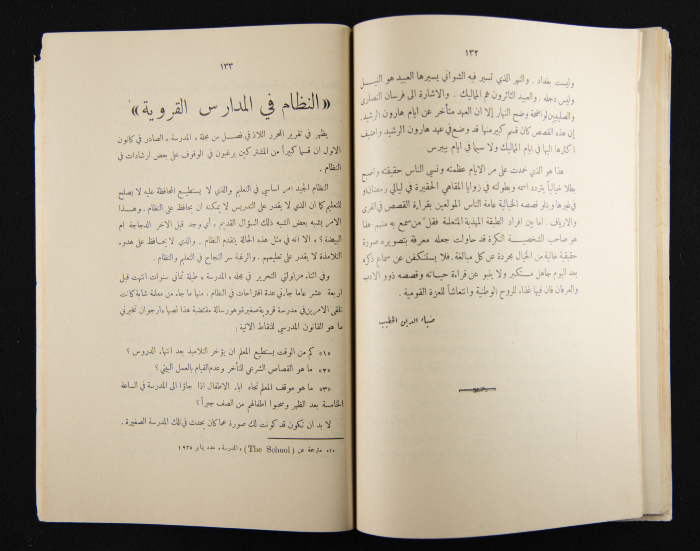 ١٣٢
وليست بغداد . والنهر الذي تسير فيه الشواني يسيرها العبيد هو النيل
وليس دجله . والعبيد الثائرون هم المماليك . والاشارة الى فرسان النصارى
والصليبيين واضحة وضح النهار إلا ان العهد متأخر عن ايام هارون الرشيد.
إن هذه القصص كان قسم كبير منها قد وضع في عهد هارون الرشيد واضيف
اكثرها اليها في ايام المماليك ولا سيما في ايام بيبرس
هذا هو الذي خمدت على مر الايام عظمته ونسي الناس حقيقته واصبح
بطلا خيالياً يتردد اسمه وبطولته في زوايا المقاهي الحقيرة في ليالي رمضان او
في غيرها ويتلو قصصه الخيالية عامة الناس المولعين بقراءة القصص في القرى
والارياف . اما بين افراد الطبقة المهذبة المتعلمة فقل من سمع به منهم. هذا
هو صاحب الشخصية النكرة قد حاولت جعله معرفة بتصويره صورة
حقيقية خالية من الخيال مجردة عن كل مبالغة. فلا يستنكفن عن سماع ذكره
بعد اليوم جاهل مستكبر ولا ينبو عن قراءة حسياته وقصصه ذوو الادب
والعرفان فان فيها غذاء للروح الوطنية وانتعاشاً للعزة القومية .
ضياء الدين الخطيب
١٣٣
«النظام في المدارس القروية»
يظهر في تقرير المحرر اللاذ في فصل من مجلة « المدرسة » الصادر في كانون
الاول ان قسما كبيراً من المشتركين يرغبون في الوقوف على بعض ارشادات في
النظام .
النظام الجيد امر اساسي في التعليم والذي لا يستطيع المحافظة عليه لا يصلح
للتعليم كما ان الذي لا يقدر على التدريس لا يمكنه ان يحافظ على النظام . وهذا
الامر يشبه بعض الشبه ذلك السؤال القديم « أي وجد قبل الآخر الدجاجة ام
البيضة ؟ » الا انه في مثل هذه الحالة يتقدم النظام . والذي لا يحافظ على هدوء
التلامذة لا يقدر على تعليمهم . والرغبة سر النجاح في التعليم والنظام .
وفي اثناء مزاولتي التحرير في مجلة « المدرسة » طيلة ثماني سنوات انتهت قبل
اربعة عشر عاما جاءني عدة اقتراحات في النظام . منها ما جاء من معلمة شابة كانت
تلقى الامرين في مدرسة قروية صغيرة وهو رسالة مقتضبة هذا نصها «ارجو ان تخبرني
ما هو القانون المدرسي للنقاط الاتية :
«١» كم من الوقت يستطيع المعلم ان يؤخر التلاميذ بعد انتهاء الدروس ؟
«٢» ما هو القصاص الشرعي للتأخر وعدم القيام بالعمل البيتي ؟
«٣» ما هو موقف المعلم تجاه آباء الاطفال اذا جاؤا الى المدرسة في الساعة
الخامسة بعد الظهر وسحبوا اطفالهم من الصف جبراً ؟
لا بد ان تكون قد كونت لك صورة عما كان يحدث في تلك المدرسة الصغيرة .
«١» مترجمة عن (The School) «المدرسة» عدد يناير ١٩٣٥